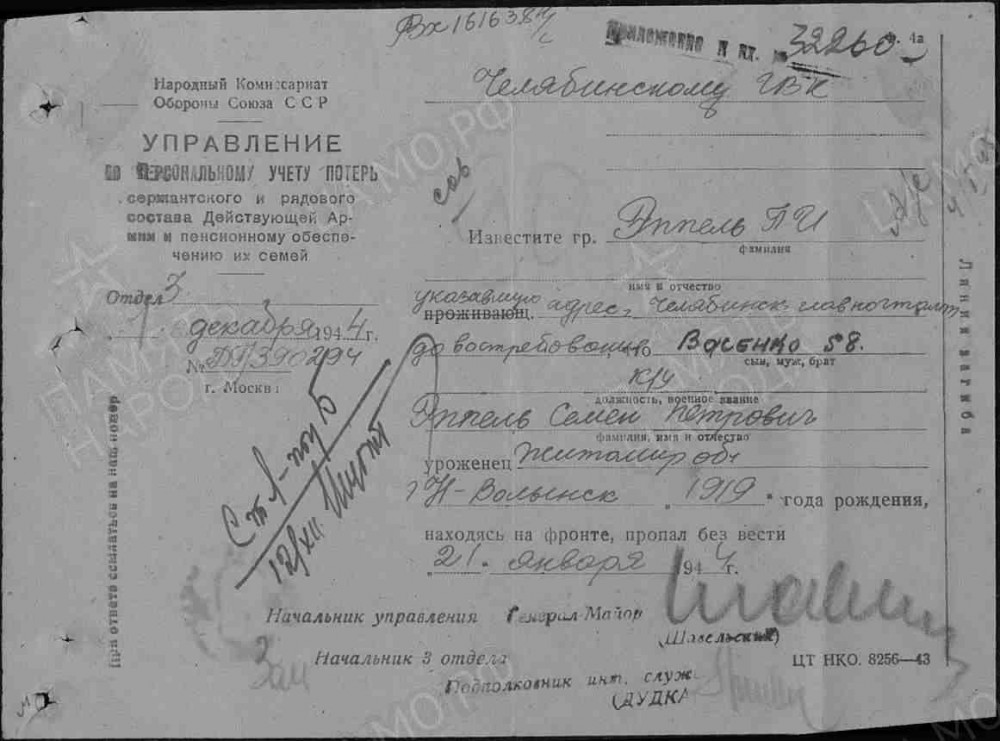 Вх 161638
Приложение к вх. № 32260
ф. 4а
Народный Комиссариат
Обороны Союза ССР
УПРАВЛЕНИЕ
ПО ПЕРСОНАЛЬНОМУ УЧЕТУ ПОТЕРЬ
сержантского и рядового
состава Действующей Ар-
мии и пенсионному обеспе-
чению их семей
Отдел 3
декабря 1944 г.
№ 390294
г. Москва
Челябинскому ГВК
сов
Известите гр. Эппель П И
фамилия
имя и отчество
указавшую адрес: Челябинск главпочтамт
проживающ.
до востребования, что Васенко 58.
сын, муж, брат
к/у
должность, военное звание
Эппель Семен Петрович
фамилия, имя и отчество
уроженец Житомир обл
г Н-Волынск 1919 года рождения,
находясь на фронте, пропал без вести
21. января 1944 г.
Начальник управления Генерал-Майор
(Шавельский)
Зам Начальник 3 отдела
Подполковник инт. служ.
(ДУДКА
ЦТ НКО. 8256—43
При ответе ссылаться на наш номер
Линия загиба
12/XII
ПАМЯТЬ
НАРОДА
ЦАМО.РФ